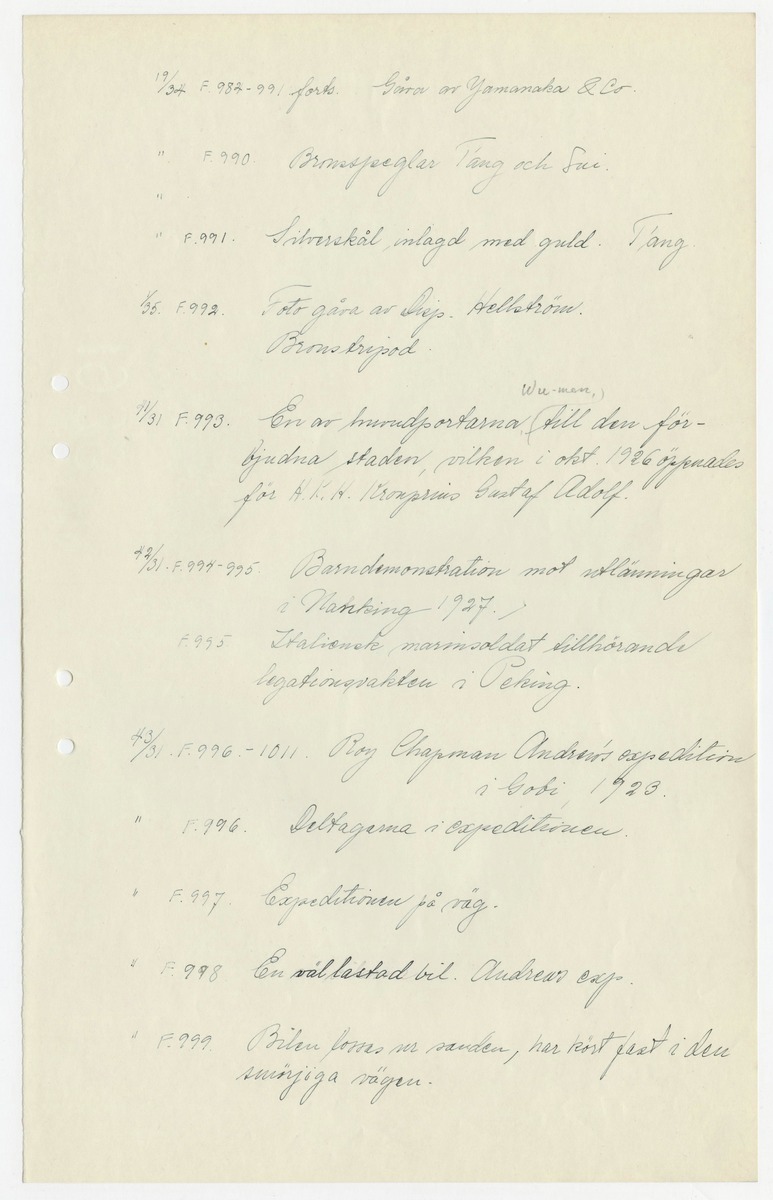 19/34 F. 982-991 forts. Gåva av Yamanaka & Co.
" F. 990. Bronsspeglar T'ang och Sui.
"
" F. 991. Silverskål, inlagd med guld. T'ang.
1/35. F. 992. Foto gåva av Disp. Hellström.
Bronstripod.
Wu-men,)
41/31 F. 993. En av huvudportarna, (till den för-
bjudna staden, vilken i okt. 1926 öppnades
för H.K.H. Kronprins Gustaf Adolf.
42/31. F. 994-995. Barndemonstration mot utlänningar
i Nanking 1927.
F. 995 Italiensk marinsoldat tillhörande
legationsvakten i Peking.
43/31. F. 996.-1011. Roy Chapman Andrew's expedition
i Gobi, 1923.
" F. 996. Deltagarna i expeditionen.
" F. 997. Expeditionen på väg.
" F. 998 En väl lastad bil. Andrews exp.
" F. 999 Bilen lossas ur sanden, har kört fast i den
smörjiga vägen.